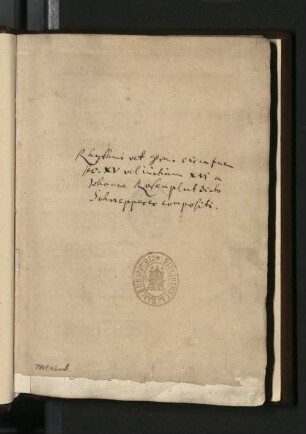 Rhythmi vet. germ. circa finem
sec. XV vel initium XVI a
Johanne Rosenplut dicto
Schnepperer compositi.